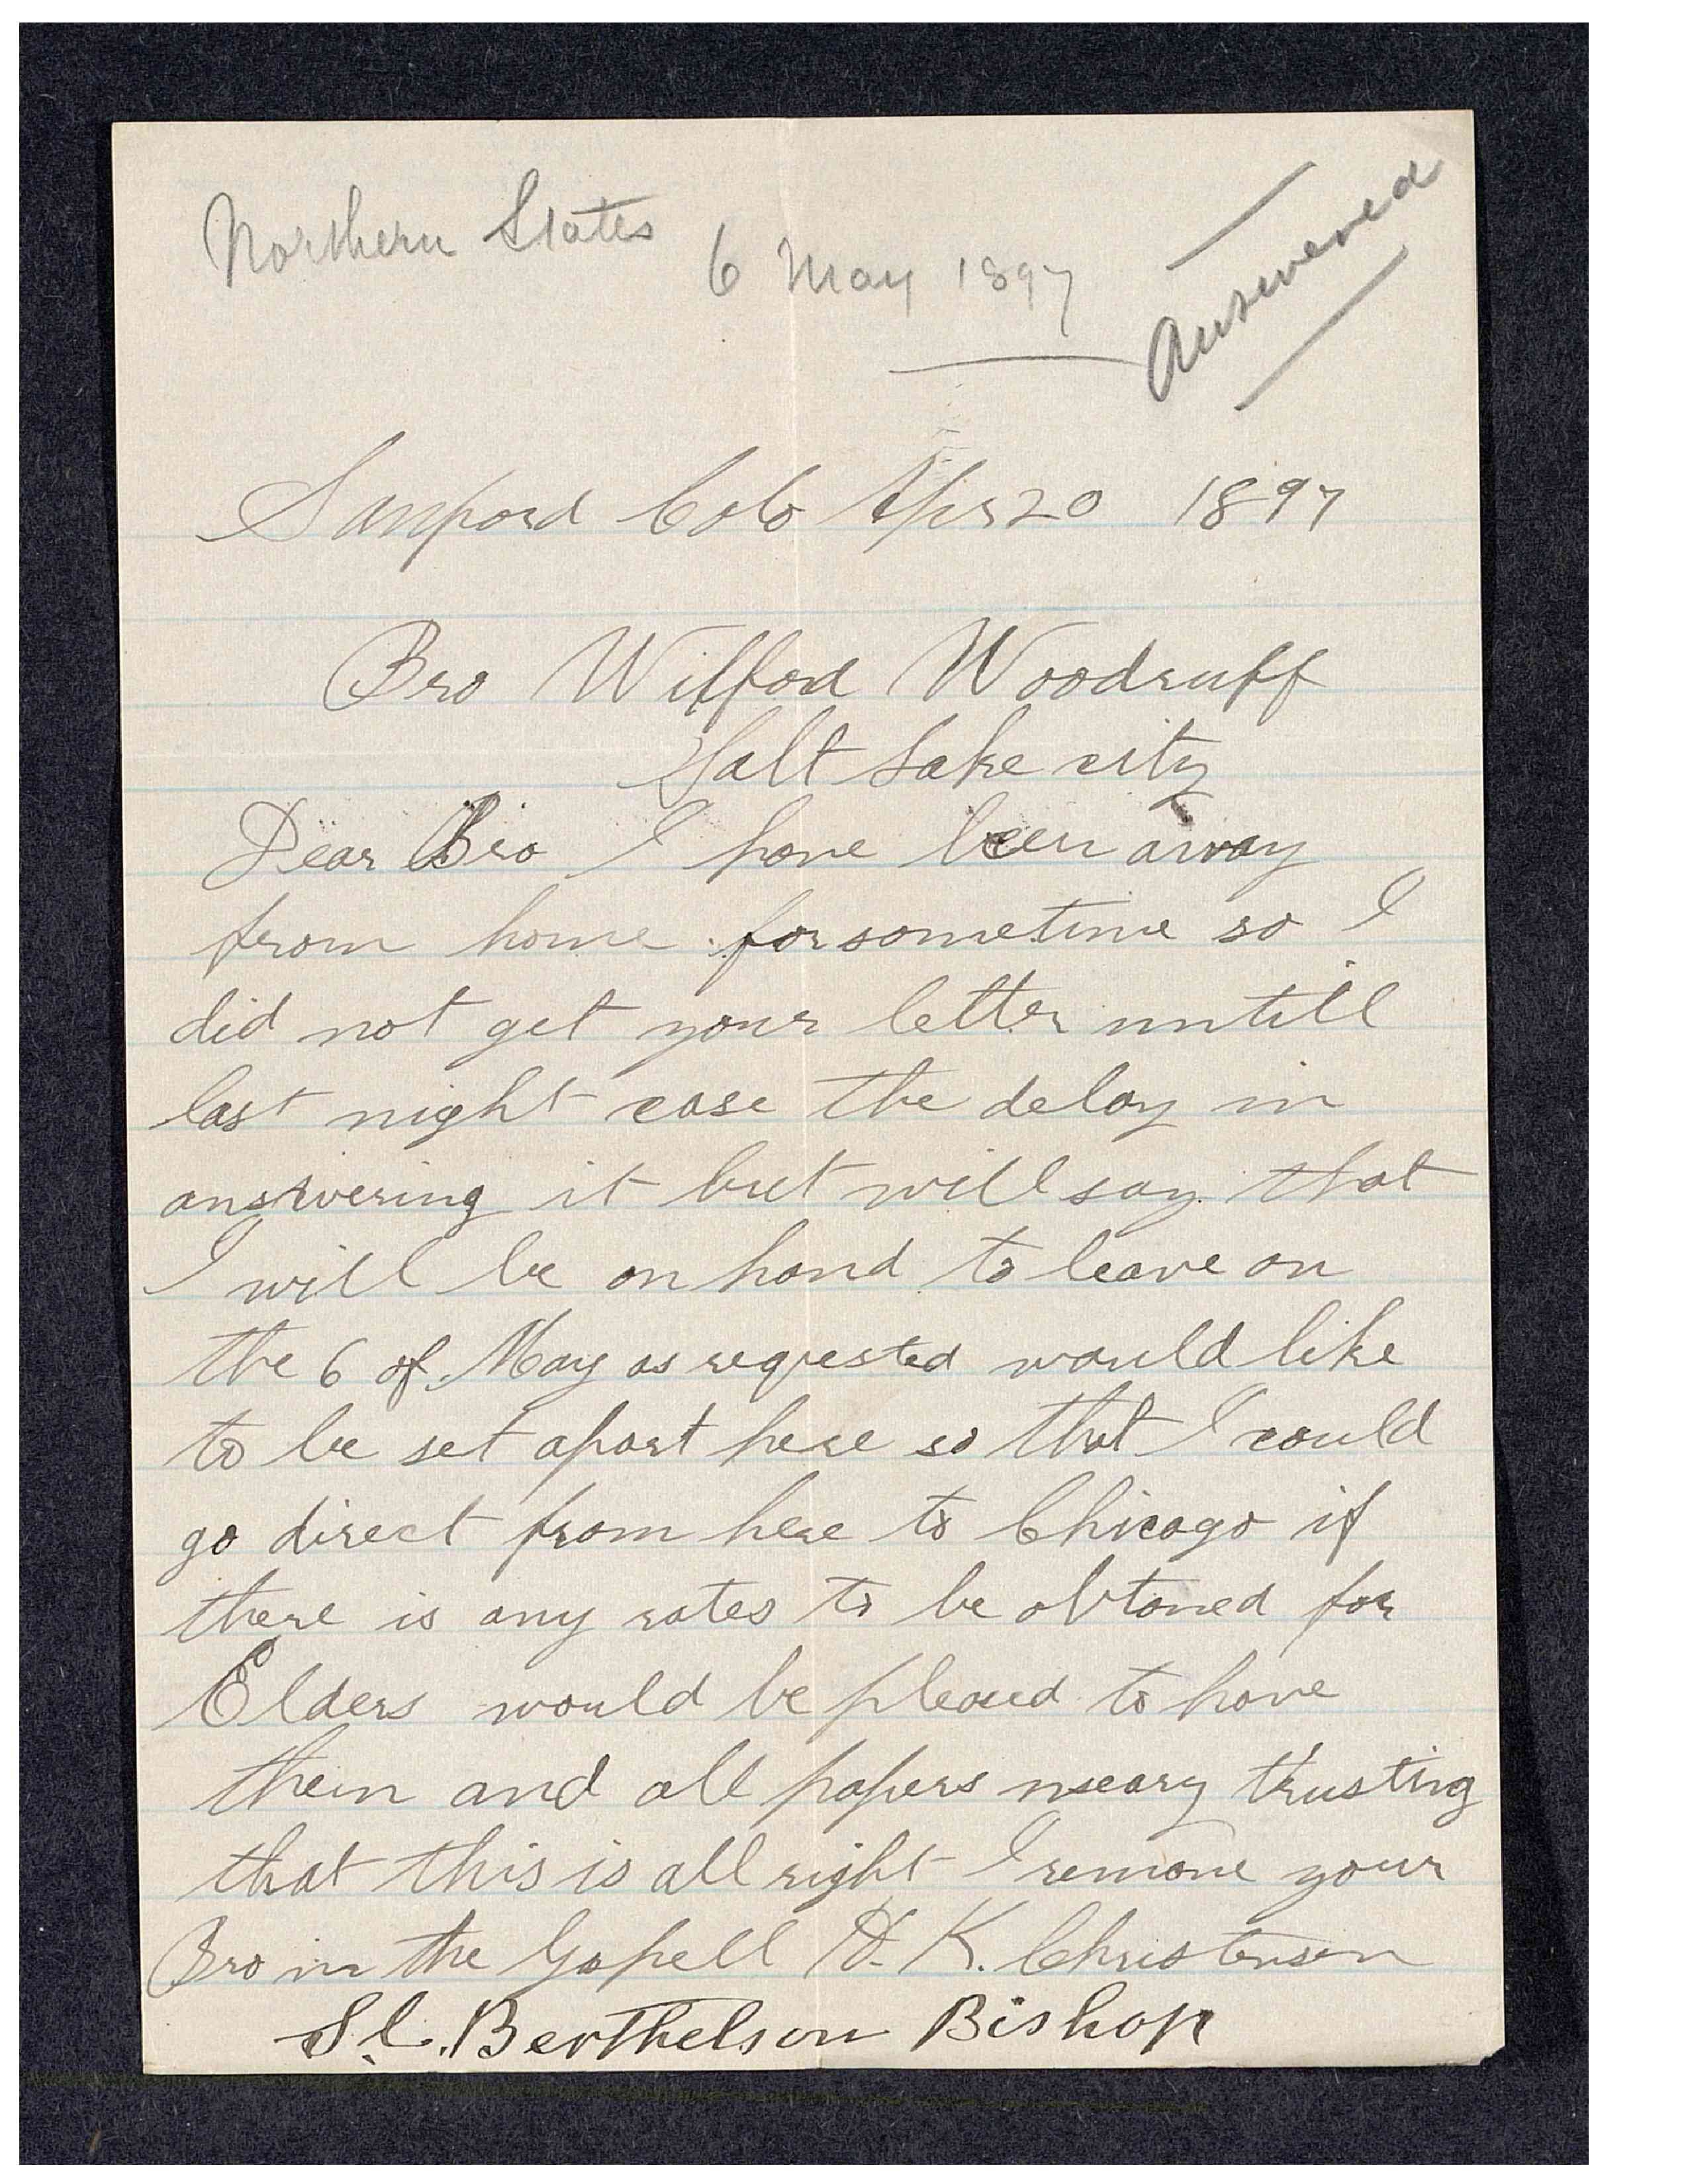 Northern States
6 May 1897
Answered
Sanford Colo Apr 20 1897
Bro Wilford Woodruff
Salt Lake city
Dear Bro I have been away
from home for sometime so I
did not get your letter untill
last night case the delay in
answering it but will say that
I will be on hand to leave on
the 6 of May as requested would like
to be set apart here so that I could
go direct from here to Chicago if
there is any rates to be obtaned for
Elders would be pleased to have
them and all papers nseary trusting
that this is all right I remane your
Bro in the Gospell K. Christensen
Berthelson Bishop